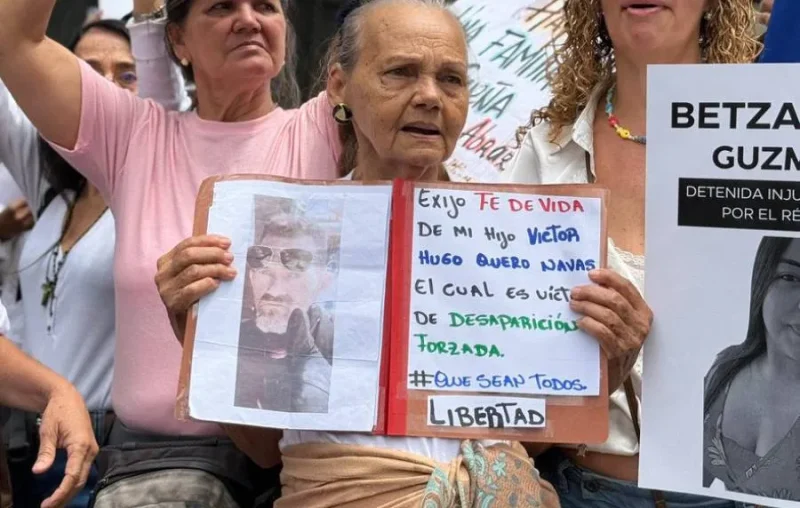 UNA FAMIL
Abraz
EXIJO FE DE VIDA
DE MI HIJO VICTOR
HUGO QUERO NAVAS
EL CUAL ES VÍCT
DE DESAPARICIÓN
FORZADA.
#QUE SEAN TODOS.
LIBERTAD
BETZA
GUZM
DETENIDA INJU
POR EL RÉ